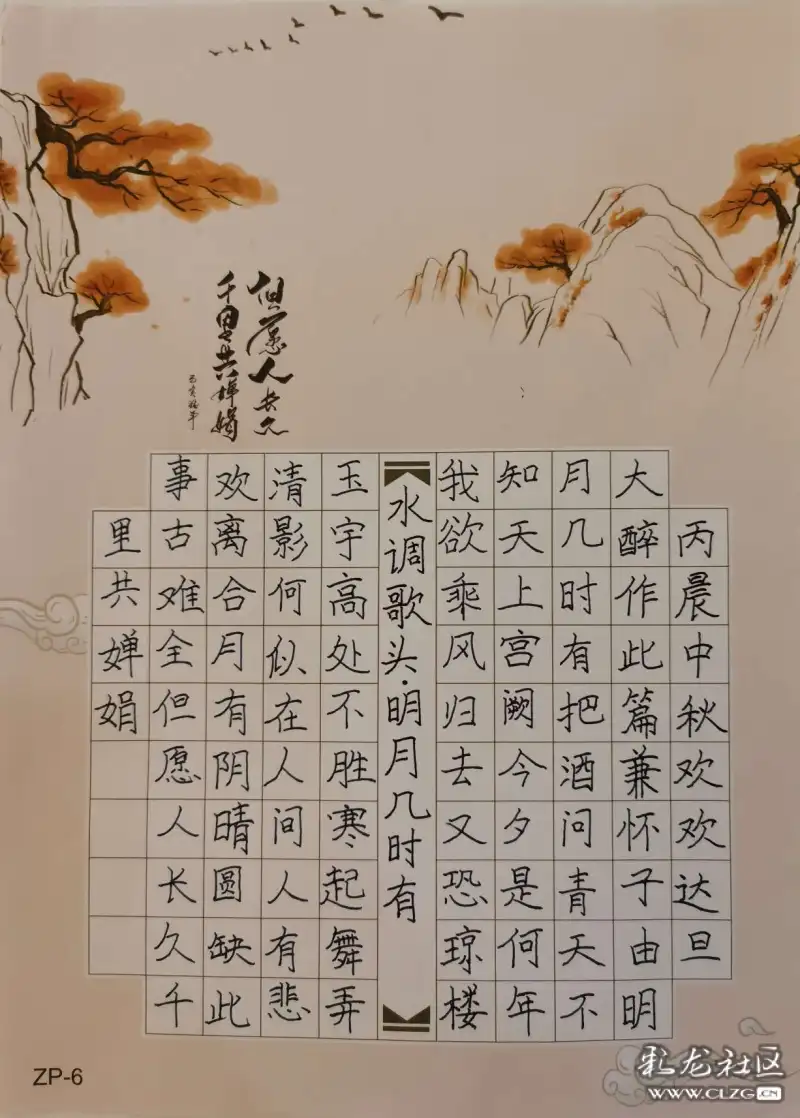 但愿人长久
千里共婵娟
丙晨中秋欢欢达旦
大醉作此篇兼怀子由明
月几时有把酒问青天不
知天上宫阙今夕是何年
我欲乘风归去又恐琼楼
水调歌头·明月几时有
玉宇高处不胜寒起舞弄
清影何似在人间人有悲
欢离合月有阴晴圆缺此
事古难全但愿人长久千
里共婵娟
ZP-6
彩龙社区
WWW.CLZG.CN